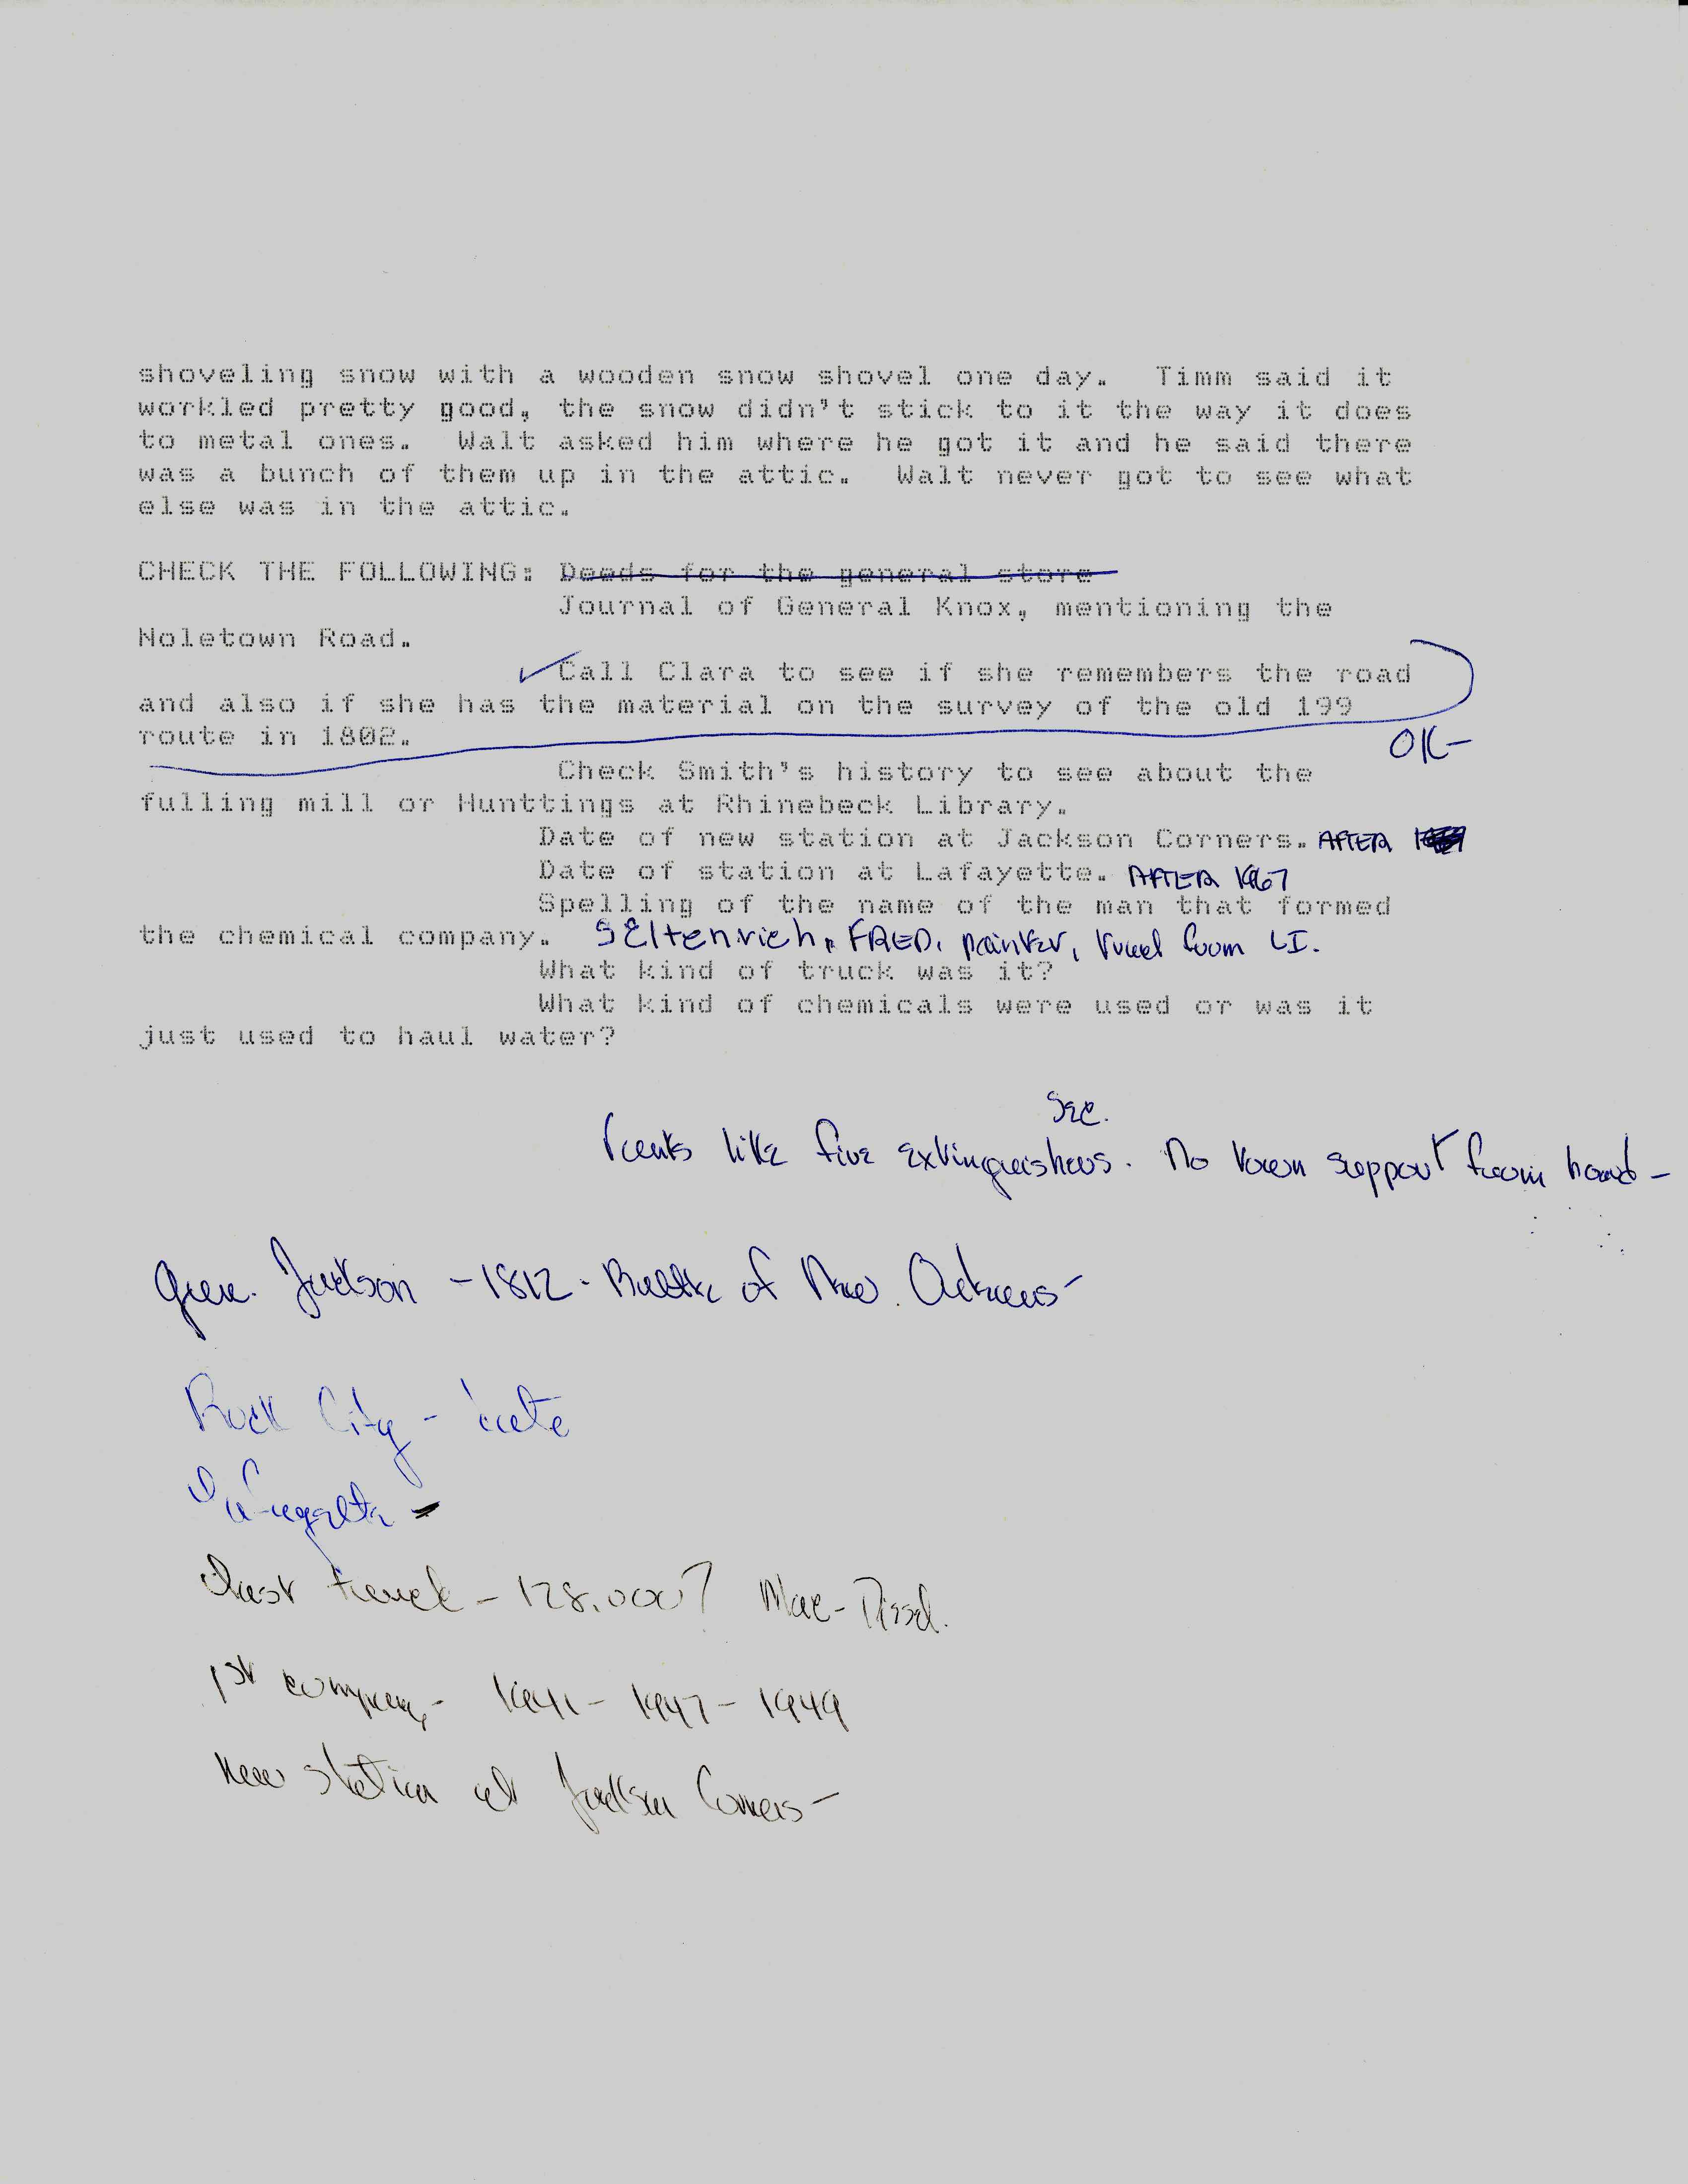 shoveling snow with a wooden snow shovel one day.  Timm said it
workled pretty good, the snow didn't stick to it the way it does
to metal ones.  Walt asked him where he got it and he said there
was a bunch of them up in the attic.  Walt never got to see what
else was in the attic.
CHECK THE FOLLOWING: Deeds for the general store
Journal of General Knox, mentioning the
Noletown Road.
Call Clara to see if she remembers the road
and also if she has the material on the survey of the old 199
route in 1802.
OK-
Check Smith's history to see about the
fulling mill or Hunttings at Rhinebeck Library.
Date of new station at Jackson Corners. AFTER
Date of station at Lafayette. AFTER 1967
Spelling of the name of the man that formed
the chemical company. SEltenrich, FRED, painter, from LI.
What kind of truck was it?
What kind of chemicals were used or was it
just used to haul water?
like fire extinguishers. No support from
Gen. Jackson - 1812 - Battle of New Orleans-
Rock City -
Lafayette -
Last truck - 128,000? Mac-Diesel.
1st company - 1941 - 1947 - 1949
New station at Jackson Corners -